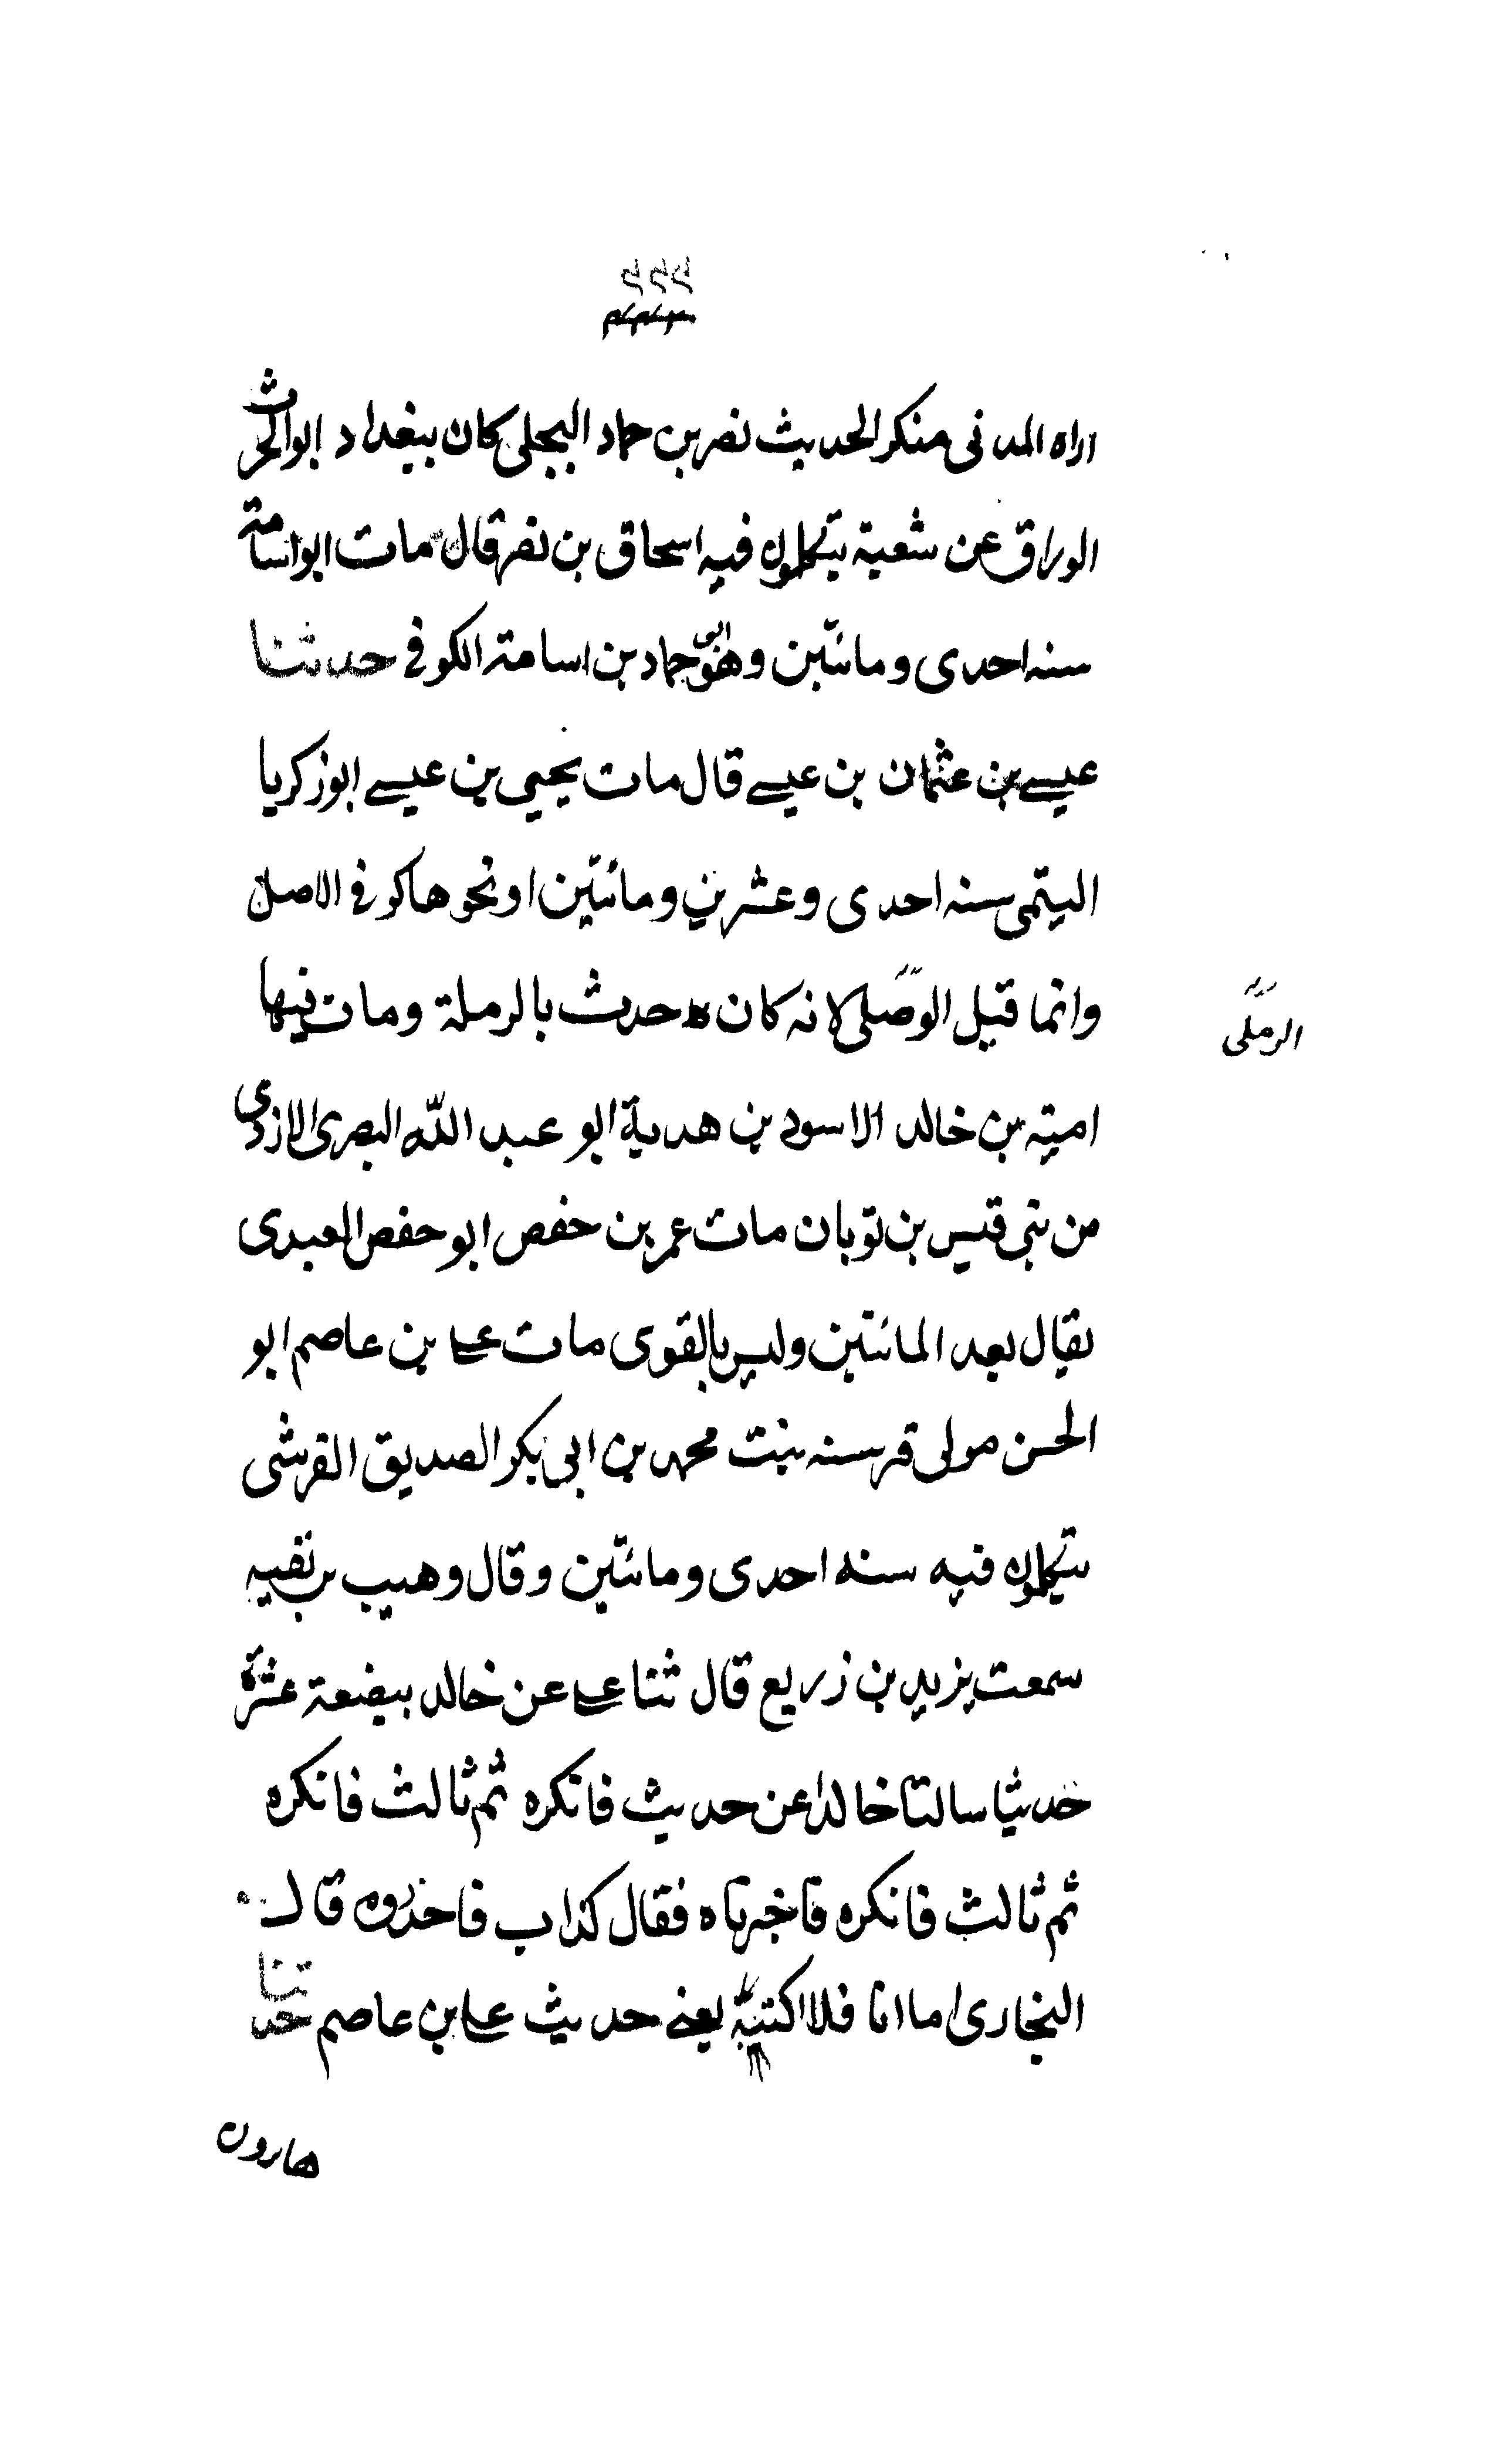 اراه المدنى منكر الحديث نصر بن حماد البجلى كان ببغداد ابو الحرث
الوراق عن شعبة يتكلمون فيه اسحاق بن نصر قال مات ابو اسامة
سنه احدى ومائتين وهو ابو حماد بن اسامة الكوفى حدثنا
عيسے بن عثمان بن عيسے قال مات يحيى بن عيسے ابو زكريا
اليتمى سنه احدى وعشرين ومائتين او نحوها كر فى الاصل
وانما قيل الوصلى لانه كان حدث بالرملة ومات فيها
الرملى
امية بن خالد الاسود بن هدية ابو عبد الله البصرى الازدى
من بنى قيس بن توبان مات عمر بن حفص ابو حفص العبدى
يقال بعد المائتين وليس بالقوى مات علے بن عاصم ابو
الحسن مولى قرسنه بنت محمد بن ابى بكر الصديق القرشى
يتكلمون فيه سنه احدى ومائتين وقال وهيب بن نفيه
سمعت يزيد بن زريع قال ثنا علے عن خالد ببضعة عشرة
حدثيا سالتا خالدا عن حديث فانكره ثم ثالث فانكره
ثم ثالث فانكره فاخبرناه فقال كذاب فاحذروه قال
البخارى اما انا فلا اكتبه يعنے حديث علے بن عاصم حدثنا
هارون